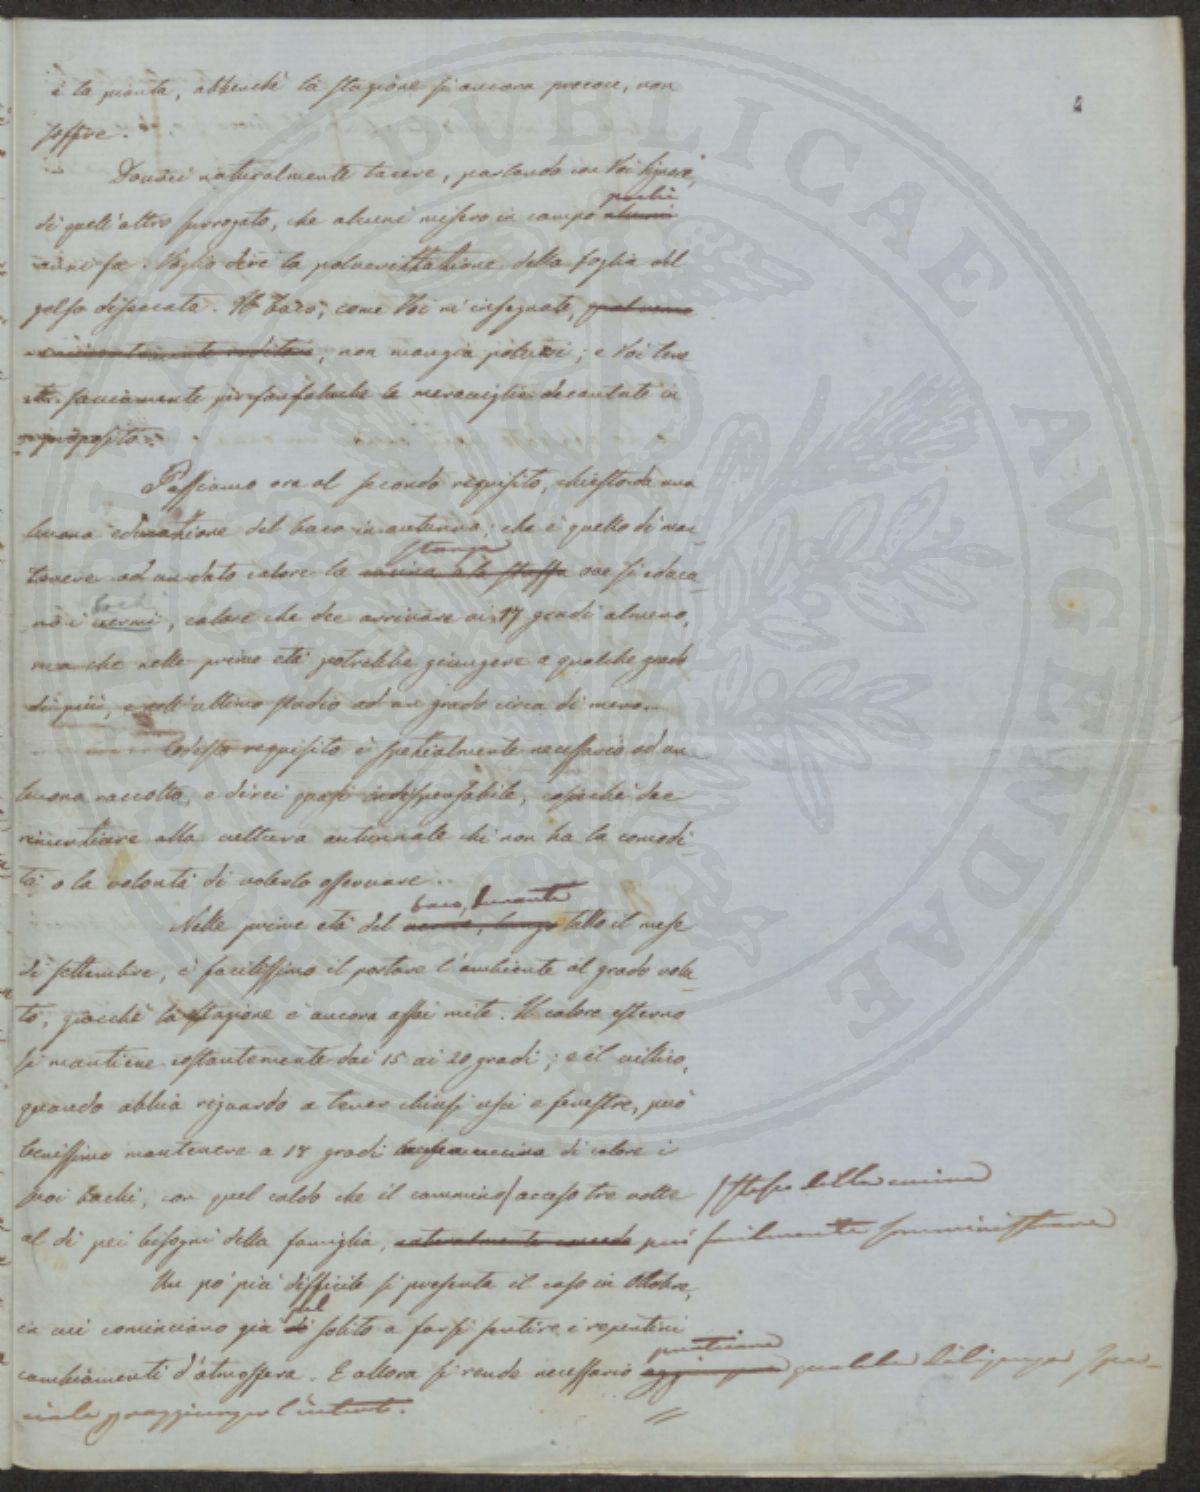 è la pianta, abbenchè la stagione sia ancora precoce, non
soffre.
Dovrei naturalmente tacere, parlando con Voi Signori,
di quell'altro surrogato, che alcuni misero in campo alcuni pochi
anni fa. Voglio dire la polverizzazione della foglia del
gelso disseccata. Il baco, come Voi m'insegnate,
non mangia polveri; e Voi tene-
te saviamente per fanfaluche le meraviglie decantate in
proposito.
Passiamo ora al secondo requisito, chiesto da una
buona educazione del baco in autunno; che è quello di man-
tenere ad un dato calore la cucina o la stuffa stanza ove si educa-
no i vermi bachi, calore che dee arrivare ai 17 gradi almeno,
ma che nelle prime età potrebbe giungere a qualche grado
di più, e nell'ultimo stadio ad un grado circa di meno.
Codesto requisito è spezialmente necessario ad un
buono raccolto, e direi quasi indispensabile, cosicchè dee
rinunciare alla cultura autunnale chi non ha la comodi-
tà o la volontà di volerlo osservare.
Nelle prime età del verme, lungo baco, durante tutto il mese
di settembre, è facilissimo il portare l'ambiente al grado volu-
to, giacchè la stagione è ancora assai mite. Il calore esterno
si mantiene costantemente dai 15 ai 20 gradi; e il villico,
quando abbia riguardo a tener chiusi usci e finestre, può
benissimo mantenere a 18 gradi di calore i
suoi bachi, con quel caldo che il cammino / acceso tre volte / stesso della cucina
al dì pei bisogni della famiglia, naturalmente concede può facilmente somministrare
Un po' più difficile si presenta il caso in Ottobre,
in cui cominciano già di pel solito a farsi sentire i repentini
cambiamenti d'atmosfera. E allora si rende necessario praticare qualche diligenza spe-
ciale per raggiunger l'intento.